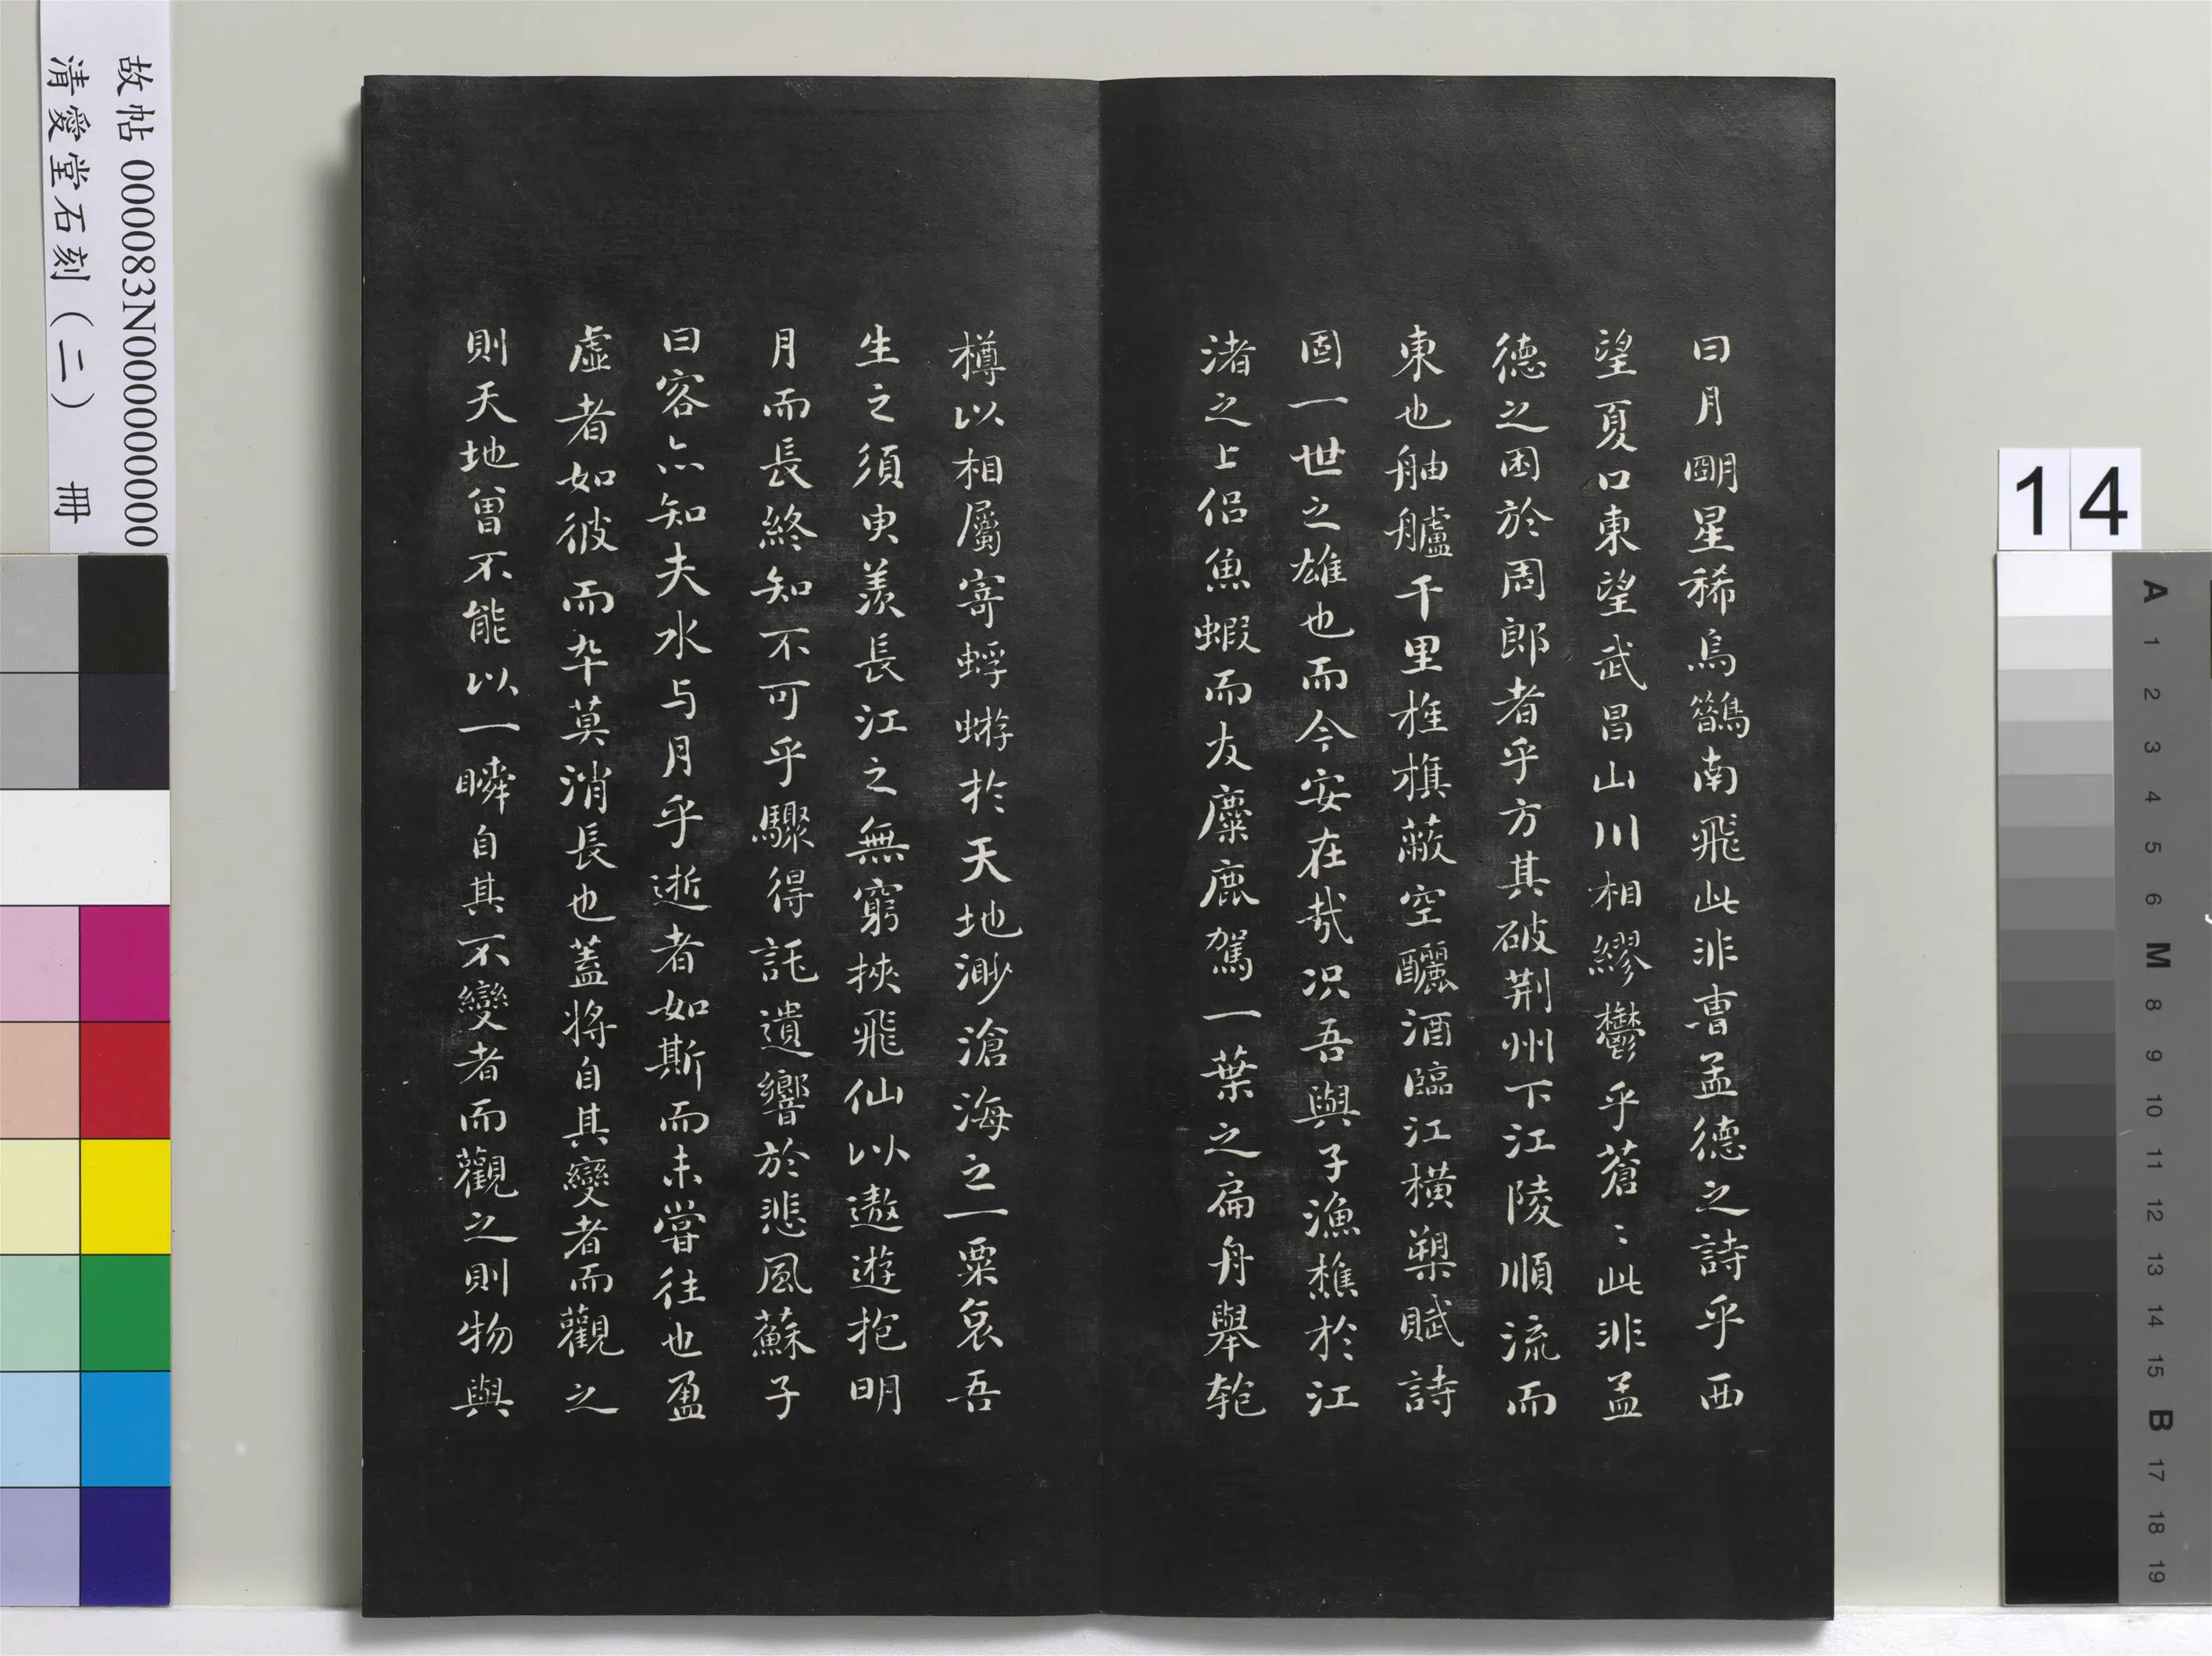 曰月朙星稀烏鵲南飛此非曹孟德之詩乎西
望夏口東望武昌山川相繆鬱乎蒼〻此非孟
德之困於周郎者乎方其破荆州下江陵順流而
東也舳艫千里旌旗蔽空釃酒臨江橫槊賦詩
固一世之雄也而今安在哉況吾與子漁樵於江
渚之上侣魚蝦而友麋鹿駕一葉之扁舟舉匏
樽以相屬寄蜉蝣於天地渺滄海之一粟哀吾
生之須臾羨長江之無窮挾飛仙以遨遊抱明
月而長終知不可乎驟得託遺響於悲風蘇子
曰客亦知夫水与月乎逝者如斯而未嘗往也盈
虛者如彼而卒莫消長也蓋將自其變者而觀之
則天地曾不能以一瞬自其不變者而觀之則物與
故帖 000083N000000000
清愛堂石刻(二) 冊
14
A 1 2 3 4 5 6 M 8 9 10 11 12 13 14 15 B 17 18 19